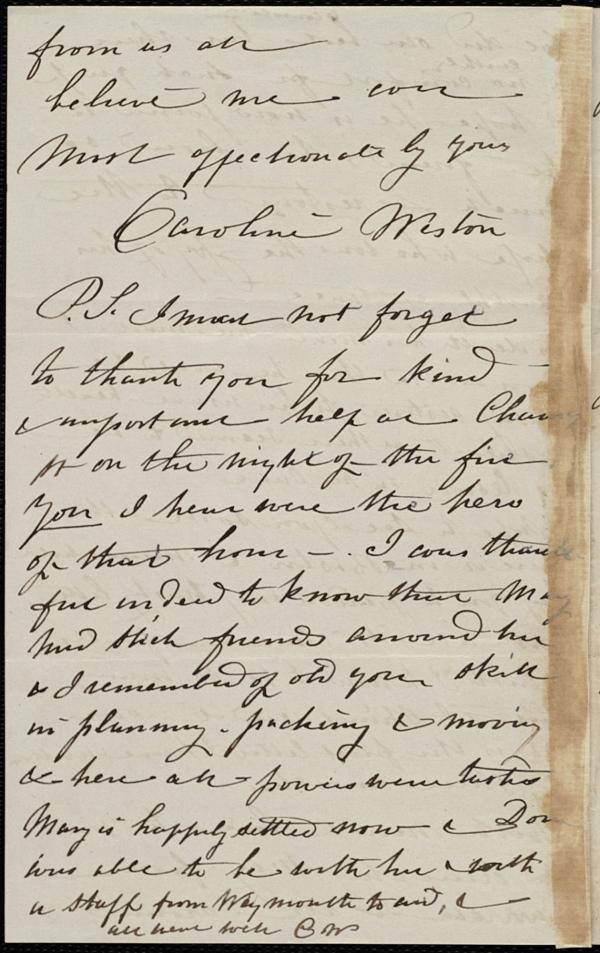 from us all
believe me ever
Most affectionately yours
Caroline Weston
P.S. I must not forget
to thank you for kind
& important help at Chauncy
pl on the night of the fire
You I hear were the hero
of that hour —. I was thank
ful indeed to know that Mary
had such friends around her
& I remembered of old your skill
in planning - packing & moving
& here all powers were tasked
Mary is happily settled now &
was able to be with her & with
a staff from Weymouth to aid, &
all were well CW